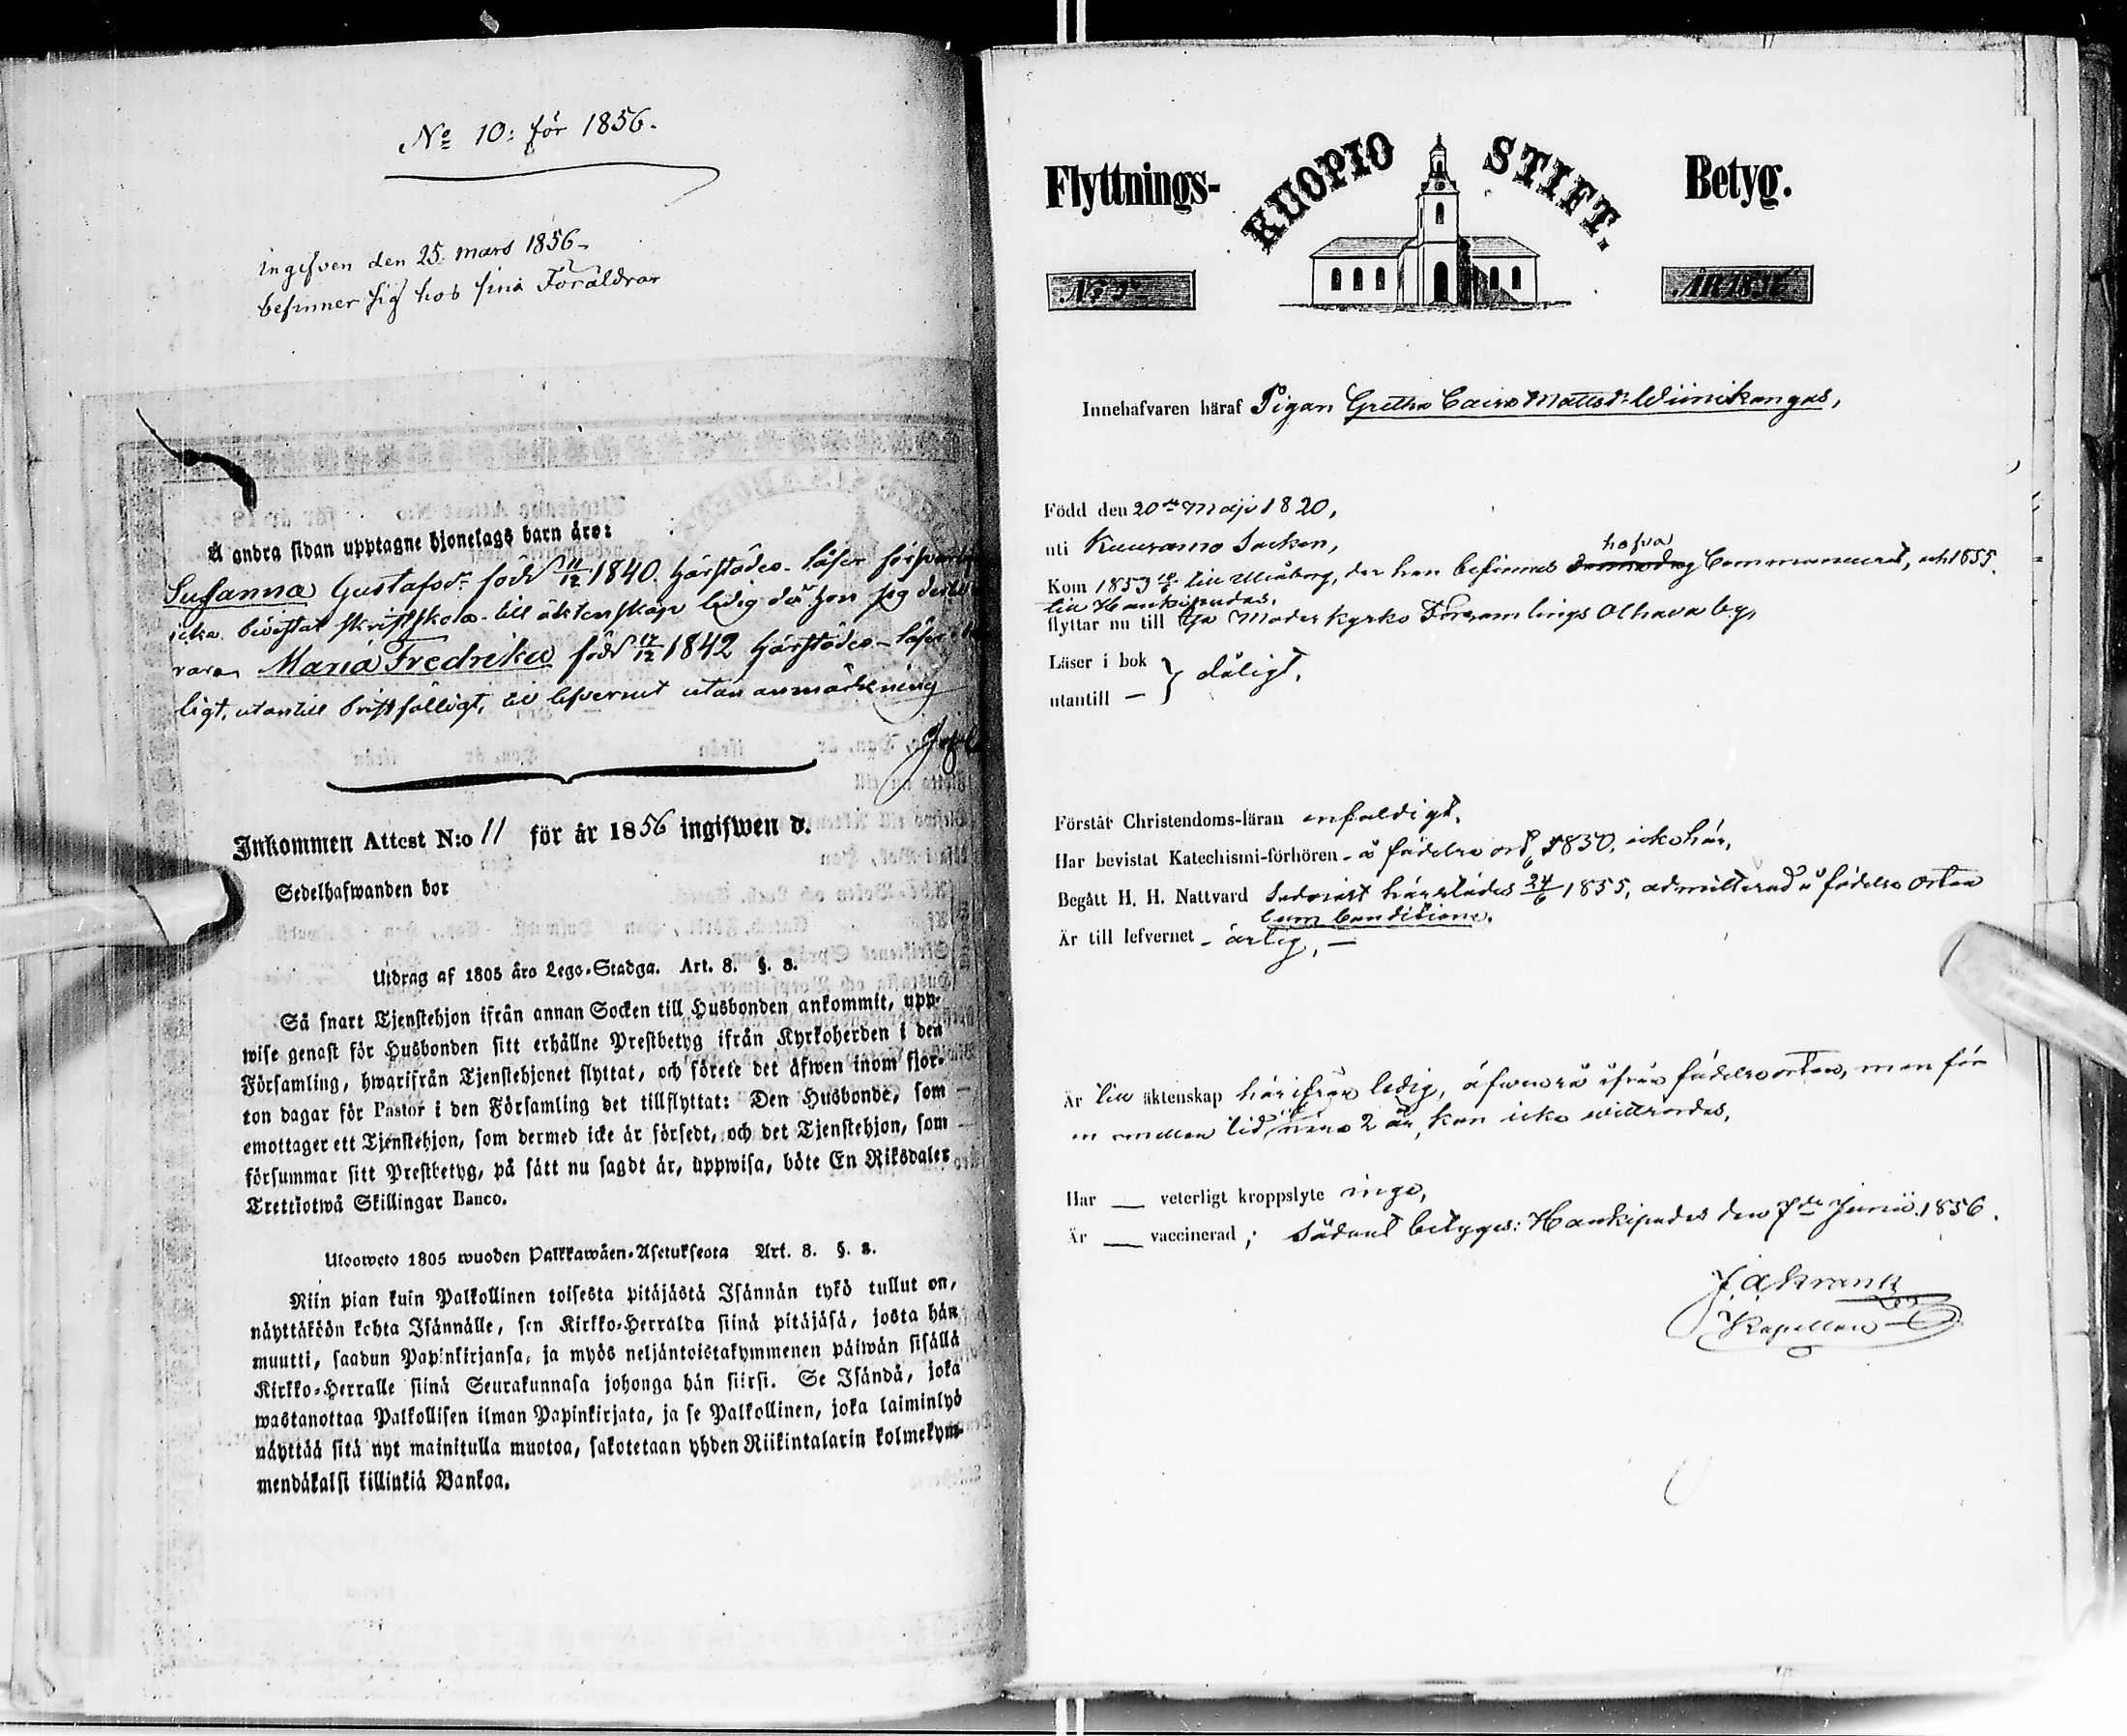 No 10: för 1856.
ingifven den 25. mars 1856
befinner sig hos sina Föräldrar
Å andra sidan upptagne hjonelags barn äro:
Susanna Gustafsdr född 11/12 1840. härstädes. läser
icke bevistat skriftskola. till äktenskap ledig då hon sig
Maria Fredrika född 17/12 1842 härstädes - läser
ligt, utantill bristfälligt, till lefvernet utan anmärkning
Inkommen Attest N:o 11 för år 1856 ingifwen d.
Sedelhafwanden bor
Utdrag af 1805 års Lego-Stadga. Art. 8. §. 8.
Så snart Tjenstehjon ifrån annan Socken till Husbonden ankommit, upp-
wise genast för Husbonden sitt erhållne Prestbetyg ifrån Kyrkoherden i den
Församling, hwarifrån Tjenstehjonet flyttat, och förete det äfwen inom fjor-
ton dagar för Pastor i den Församling det tillflyttat: Den Husbonde, som
emottager ett Tjenstehjon, som dermed icke är försedt, och det Tjenstehjon, som
försummar sitt Prestbetyg, på sätt nu sagdt är, uppwisa, böte En Riksdaler
Trettiotwå Skillingar Banco.
Ulosweto 1805 wuoden Palkkawäen-Asetuksesta Art. 8. §. 8.
Niin pian kuin Palkollinen toisesta pitäjästä Isännän tykö tullut on,
näyttäköön kohta Isännälle, sen Kirkko-Herralda siinä pitäjäsä, josta hän
muutti, saadun Papinkirjansa, ja myös neljäntoistakymmenen päiwän sisällä
Kirkko-Herralle siinä Seurakunnasa johonga hän siirsi. Se Isändä, joka
wastanottaa Palkollisen ilman Papinkirjata, ja se Palkollinen, joka laiminlyö
näyttää sitä nyt mainitulla muotoa, sakotetaan yhden Riikintalarin kolmekym-
mendäkaksi killinkiä Bankoa.
Flyttnings- KUOPIO STIFT. Betyg.
ÅR 1856
Innehafvaren häraf Pigan Gretha Caisa Mattsdr Wiinikangas,
Född den 20de Maji 1820,
uti Kuusamo Socken,
hafva
Kom 1853 till Uleåborg, der hon befinnes Communicerat, och 1855
till Haukipudas.
flyttar nu till Ijo Moder kyrko Församlings Olhava by,
Läser i bok } dåligt.
utantill —
Förstår Christendoms-läran enfaldigt.
Har bevistat Katechismi-förhören - å födelse ort 1850, icke här.
Begått H. H. Nattvard Sednast härstädes 24/6 1855, admitterad å födelse orten
cum Conditione.
Är till lefvernet - ärlig, —
Är till äktenskap härifrån ledig, äfvenså ifrån födelseorten, men för
en mellan tid 2 år, kan icke
Har — veterligt kroppslyte inge,
Är — vaccinerad; Sådant betyges: Haukipudas den 7de Junii 1856.
Kapellan